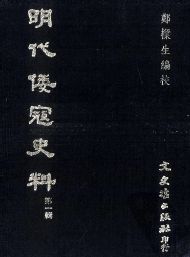 鄭樑生編校
明代倭寇史料
第一輯
文史哲出版社印行